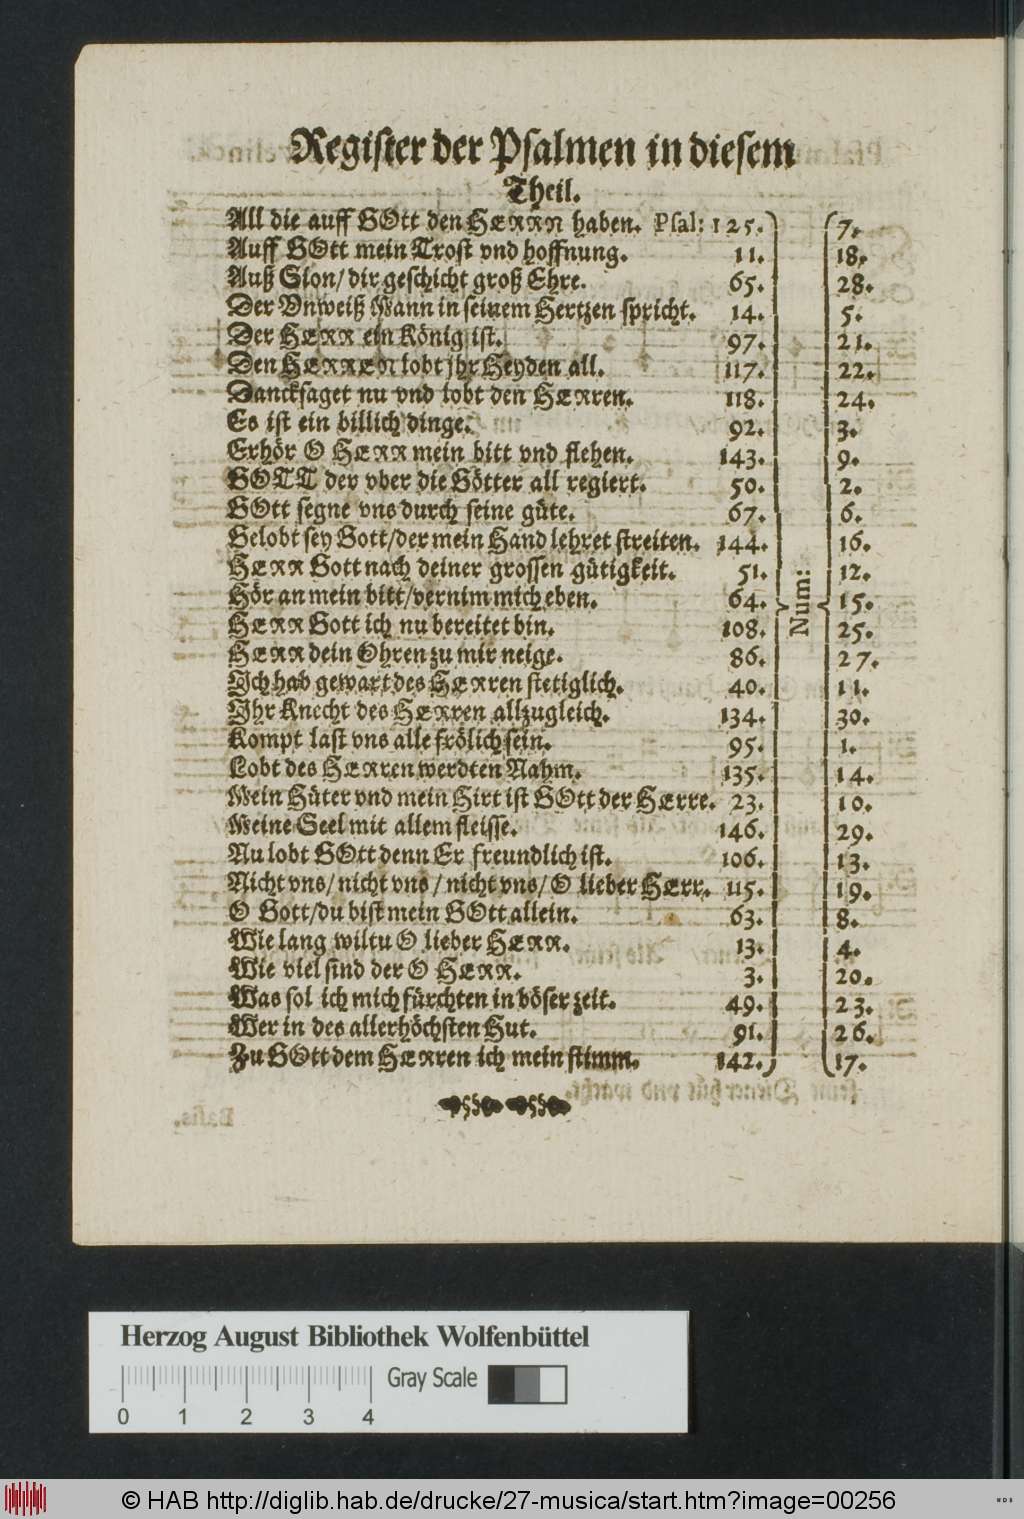 Register der Psalmen in diesem
Theil.
All die auff GOtt den HERRN haben. Psal: 125. 7.
Auff GOtt mein Trost vnd hoffnung. 11. 18.
Auß Sion/ dir geschicht groß Ehre. 65. 28.
Der Vnweiß Mann in seinem Hertzen spricht. 14. 5.
Der HERR ein König ist. 97. 21.
Den HERREN lobt jhr Heyden all. 117. 22.
Dancksaget nu vnd lobt den HERren. 118. 24.
Es ist ein billich dinge. 92. 3.
Erhör O HERR mein bitt vnd flehen. 143. 9.
GOTT der vber die Götter all regiert. 50. 2.
GOtt segne vns durch seine güte. 67. 6.
Gelobt sey Gott/der mein Hand lehret streiten. 144. 16.
HERR Gott nach deiner grossen gütigkeit. 51. 12.
Hör an mein bitt/vernim mich eben. 64. 15.
HERR Gott ich nu bereitet bin. 108. 25.
HERR dein Ohren zu mir neige. 86. 27.
Ich hab gewart des HERren stetiglich. 40. 11.
Ihr Knecht des HERren allzugleich. 134. 30.
Kompt last vns alle frölich sein. 95. 1.
Lobt des HERren werdten Nahm. 135. 14.
Mein Hüter vnd mein Hirt ist GOtt der HErre. 23. 10.
Meine Seel mit allem fleisse. 146. 29.
Nu lobt GOtt denn Er freundlich ist. 106. 13.
Nicht vns/ nicht vns / nicht vns/ O lieber HErr. 115. 19.
O Gott/du bist mein GOtt allein. 63. 8.
Wie lang wiltu O lieber HERR. 13. 4.
Wie viel sind der O HERR. 3. 20.
Was sol ich mich fürchten in böser zeit. 49. 23.
Wer in des allerhöchsten Hut. 91. 26.
Zu GOtt dem HERren ich mein stimm. 142. 17.
Num:
Herzog August Bibliothek Wolfenbüttel
Gray Scale
0 1 2 3 4
© HAB http://diglib.hab.de/drucke/27-musica/start.htm?image=00256